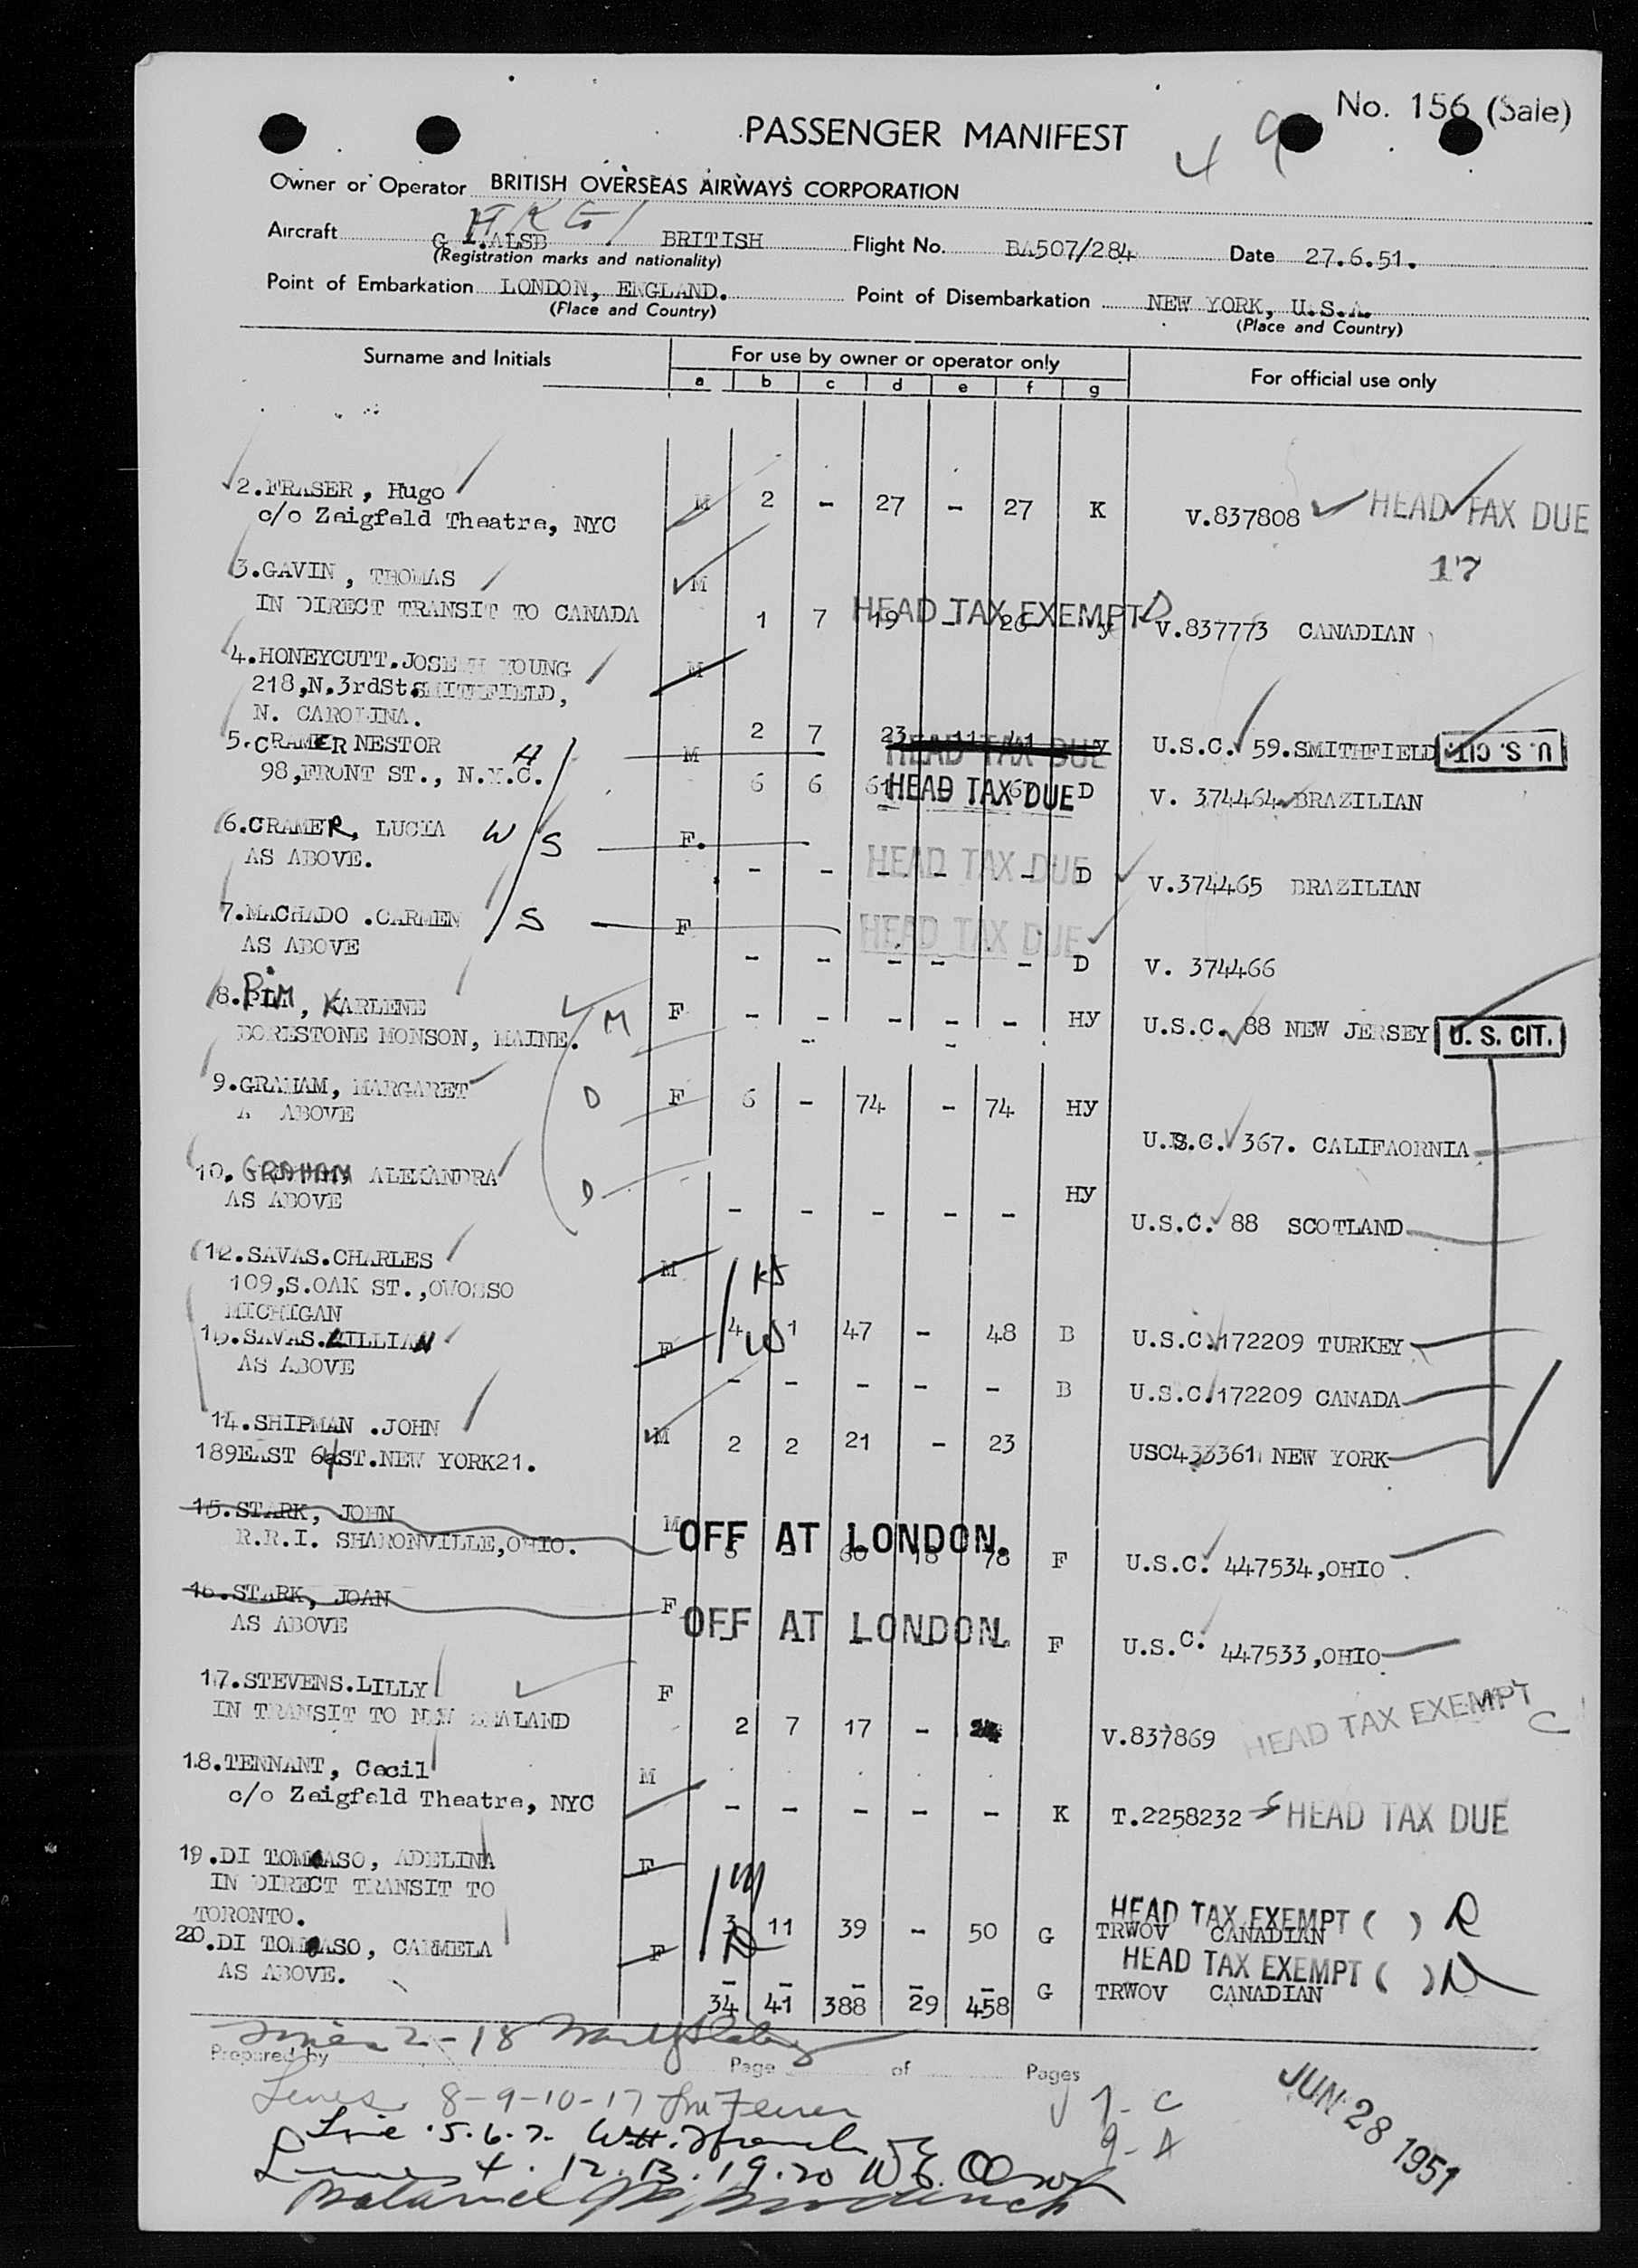 No. 156 (Sale)
PASSENGER MANIFEST
49
Owner or Operator BRITISH OVERSEAS AIRWAYS CORPORATION
HKG1
Aircraft G ALSB BRITISH Flight No. BA507/284 Date 27.6.51.
(Registration marks and nationality)
Point of Embarkation LONDON, ENGLAND. Point of Disembarkation NEW YORK, U.S.A.
(Place and Country) (Place and Country)
Surname and Initials For use by owner or operator only For official use only
a b c d e f g
2.FRASER, Hugo M 2 - 27 - 27 K V.837808 HEAD TAX DUE
c/o Zeigfeld Theatre, NYC
17
3.GAVIN, THOMAS M
IN DIRECT TRANSIT TO CANADA 1 7 19 - 26 HEAD TAX EXEMPT V.837773 CANADIAN
4.HONEYCUTT.JOSEPH YOUNG M
218,N.3rdSt.SMITHFIELD,
N. CAROLINA.
2 7 23 11 41 y HEAD TAX DUE U.S.C. 59.SMITHFIELD U.S. CIT.
5.CRAMER NESTOR H M
98,FRONT ST., N.Y.C. 6 6 61 - 67 D HEAD TAX DUE V. 374464 BRAZILIAN
6.CRAMER, LUCIA W/S F.
AS ABOVE. - - - - - D HEAD TAX DUE V.374465 BRAZILIAN
7.MACHADO .CARMEN /S F HEAD TAX DUE
AS ABOVE - - - - - D V. 374466
8.PIM, KARLENE M F - - - - - HY U.S.C. 88 NEW JERSEY U. S. CIT.
BORESTONE MONSON, MAINE.
9.GRAHAM, MARGARET D F 6 - 74 - 74 HY
A ABOVE
U.S.C. 367. CALIFAORNIA
10. GRAHAM ALEXANDRA D HY
AS ABOVE - - - - - U.S.C. 88 SCOTLAND
12.SAVAS.CHARLES M
109,S.OAK ST.,OWOSSO
MICHIGAN
4 1 47 - 48 B U.S.C.172209 TURKEY
13.SAVAS.LILLIAN F W
AS ABOVE - - - - - B U.S.C.172209 CANADA
14.SHIPMAN .JOHN M 2 2 21 - 23 USC433361 NEW YORK
189EAST 64ST.NEW YORK21.
15.STARK, JOHN M OFF AT LONDON.
R.R.I. SHARONVILLE,OHIO. 60 18 78 F U.S.C. 447534,OHIO
16.STARK, JOAN F OFF AT LONDON.
AS ABOVE F U.S.C. 447533,OHIO
17.STEVENS.LILLY F
IN TRANSIT TO NEW ZEALAND 2 7 17 - 24 V.837869 HEAD TAX EXEMPT C
18.TENNANT, Cecil M
c/o Zeigfeld Theatre, NYC - - - - - K T.2258232 HEAD TAX DUE
19.DI TOMASO, ADELINA F M
IN DIRECT TRANSIT TO
TORONTO. 3 11 39 - 50 G HEAD TAX EXEMPT ( ) TRWOV CANADIAN
20.DI TOMASO, CARMELA F D HEAD TAX EXEMPT ( )
AS ABOVE. - - - - - G TRWOV CANADIAN
34 41 388 29 458
2-18
Prepared by Page of Pages
Lines 8-9-10-17
7-C
Line 5.6.7.
9-A
Lines 4. 12.13.19.20
JUN 28 1951